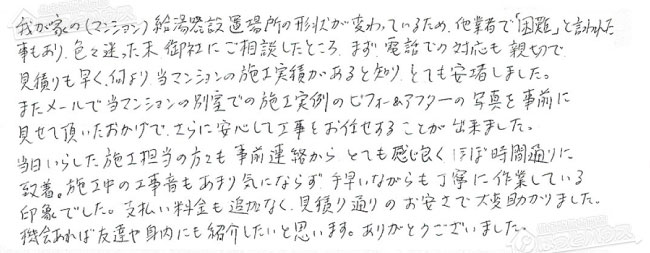 我が家の(マンション)給湯器設置場所の形状が変わっているため、他業者で「困難」と言われた
事もあり、色々迷った末、御社にご相談したところ、まず、電話での対応も親切で
見積りも早く、何より当マンションの施工実績があると知り、とても安堵しました。
またメールで当マンションの別室での施工実例のビフォー&アフターの写真を事前に
見せて頂いたおかげで、さらに安心して工事をお任せすることが出来ました。
当日いらした施工担当の方々も事前連絡からとても感じ良くほぼ時間通りに
到着。施工中の工事音もあまり気にならず、手早いながらも丁寧に作業している
印象でした。支払い料金も追加なく、見積り通りのお安さで大変助かりました。
機会あれば友達や身内にも紹介したいと思います。ありがとうございました。